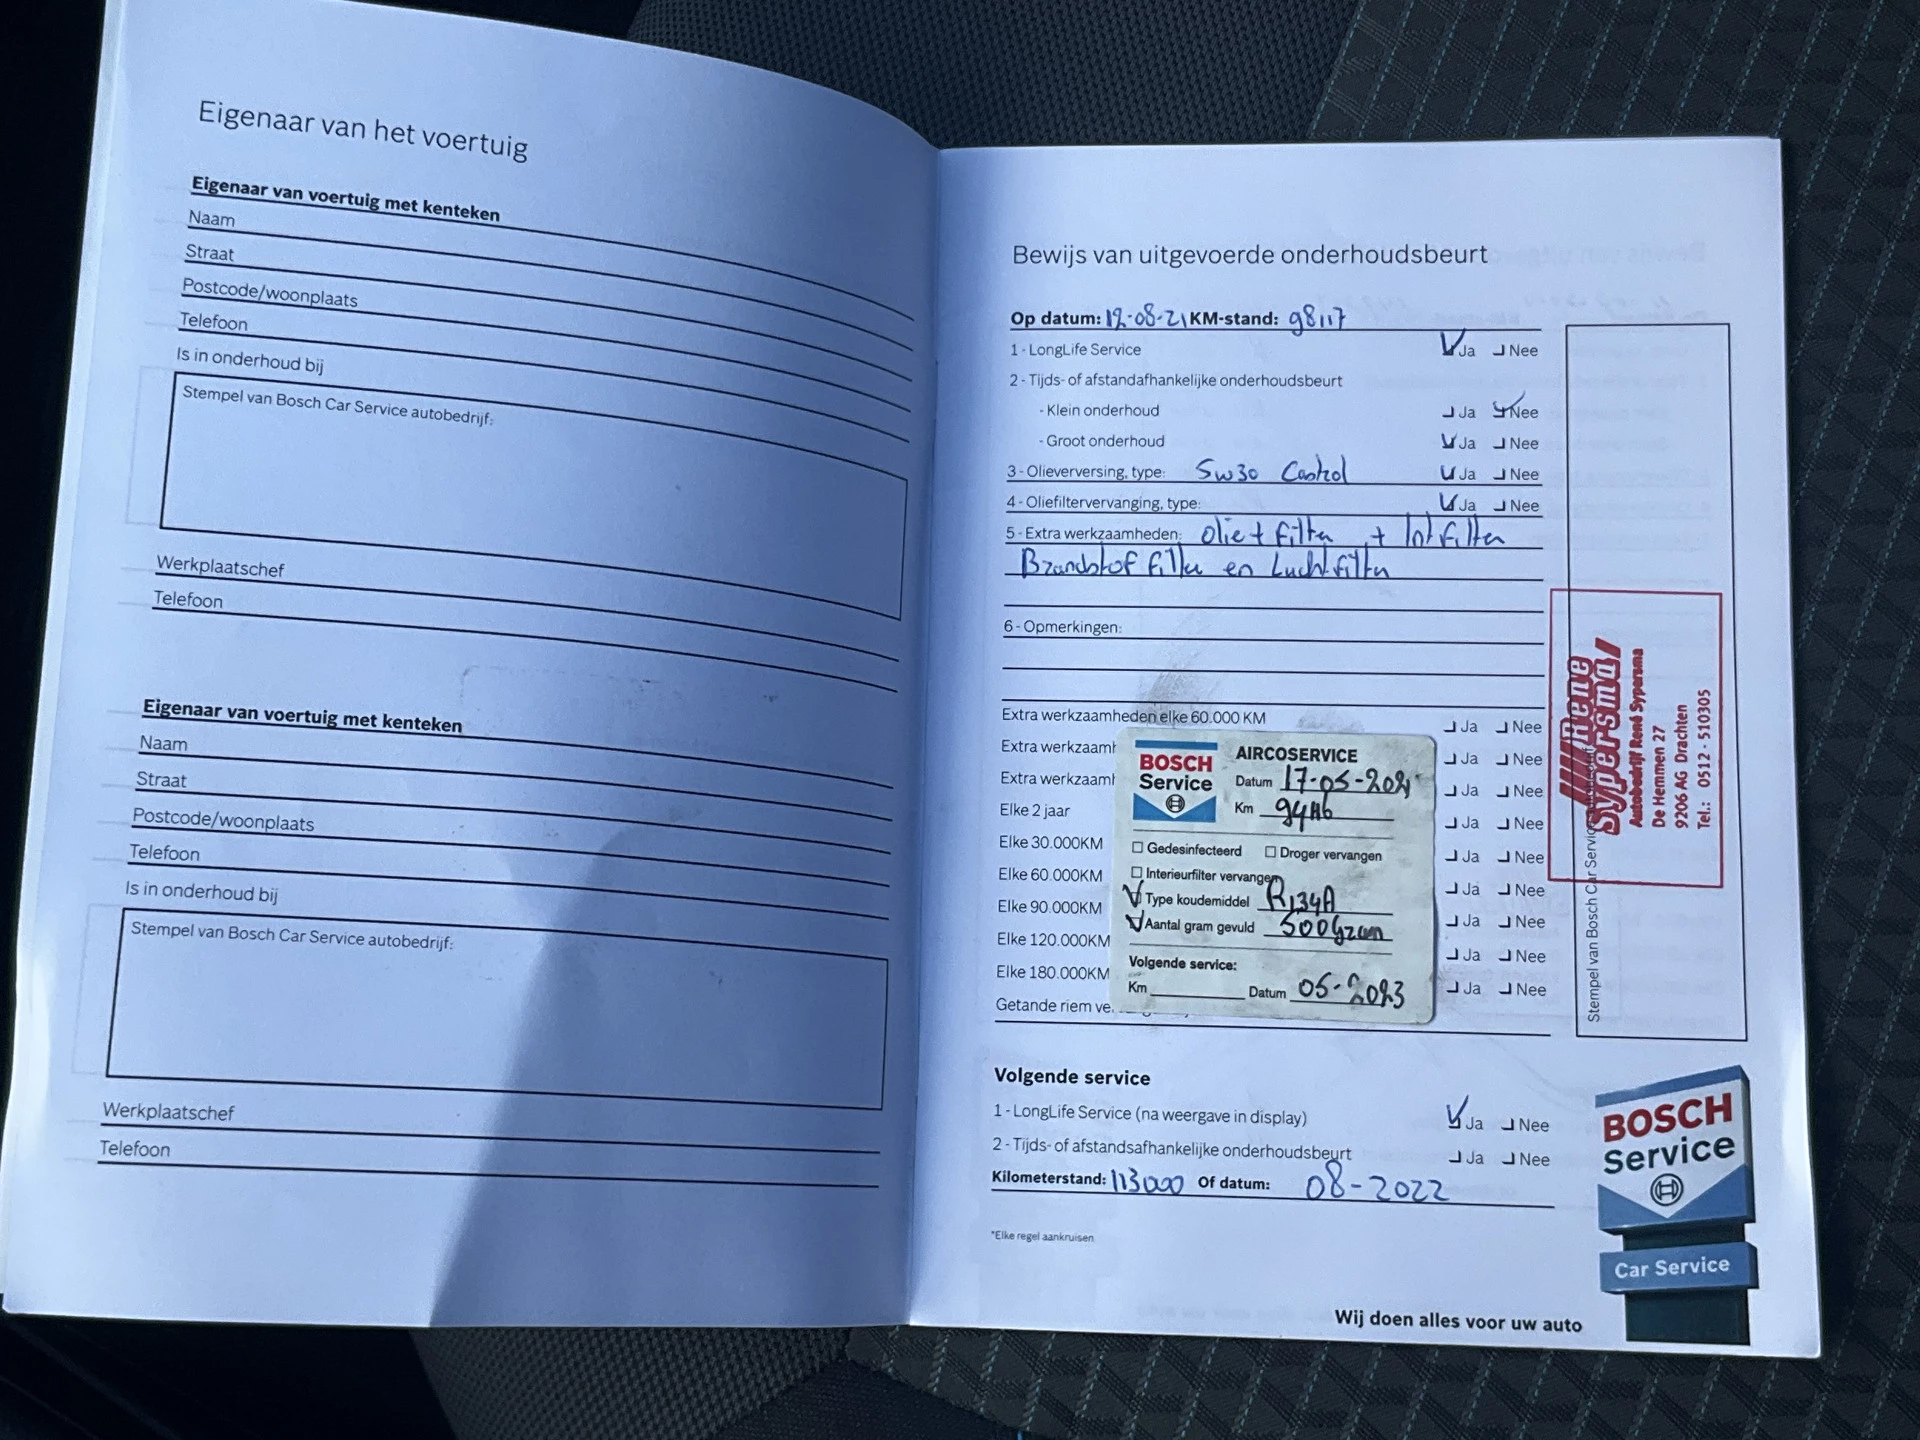 Eigenaar van het voertuig
Eigenaar van voertuig met kenteken
Naam
Straat
Postcode/woonplaats
Telefoon
Is in onderhoud bij
Stempel van Bosch Car Service autobedrijf:
Werkplaatschef
Telefoon
Eigenaar van voertuig met kenteken
Naam
Straat
Postcode/woonplaats
Telefoon
Is in onderhoud bij
Stempel van Bosch Car Service autobedrijf:
Werkplaatschef
Telefoon
Bewijs van uitgevoerde onderhoudsbeurt
Op datum: 12-08-21 KM-stand: 98117
1 - LongLife Service Ja Nee
2 - Tijds- of afstandafhankelijke onderhoudsbeurt
- Klein onderhoud Ja Nee
- Groot onderhoud Ja Nee
3 - Olieverversing, type: 5w30 Castrol Ja Nee
4 - Oliefiltervervanging, type: Ja Nee
5 - Extra werkzaamheden: olie + filter + Int filter
Brandstof filter en Luchtfilter
6 - Opmerkingen:
Extra werkzaamheden elke 60.000 KM Ja Nee
Extra werkzaamh Ja Nee
Extra werkzaamh Ja Nee
Elke 2 jaar Ja Nee
Elke 30.000KM Ja Nee
Elke 60.000KM Ja Nee
Elke 90.000KM Ja Nee
Elke 120.000KM Ja Nee
Elke 180.000KM Ja Nee
Getande riem ve
BOSCH
Service
AIRCOSERVICE
Datum 17-05-2021
Km
Gedesinfecteerd Droger vervangen
Interieurfilter vervangen
Type koudemiddel R134A
Aantal gram gevuld 500Gram
Volgende service:
Km Datum 05-2023
Stempel van Bosch Car Service
Rene
Sypersma
Autobedrijf René Sypersma
De Hemmen 27
9206 AG Drachten
Tel.: 0512 - 510305
Volgende service
1 - LongLife Service (na weergave in display) Ja Nee
2 - Tijds- of afstandsafhankelijke onderhoudsbeurt Ja Nee
Kilometerstand: 113000 Of datum: 08-2022
*Elke regel aankruisen
BOSCH
Service
Car Service
Wij doen alles voor uw auto